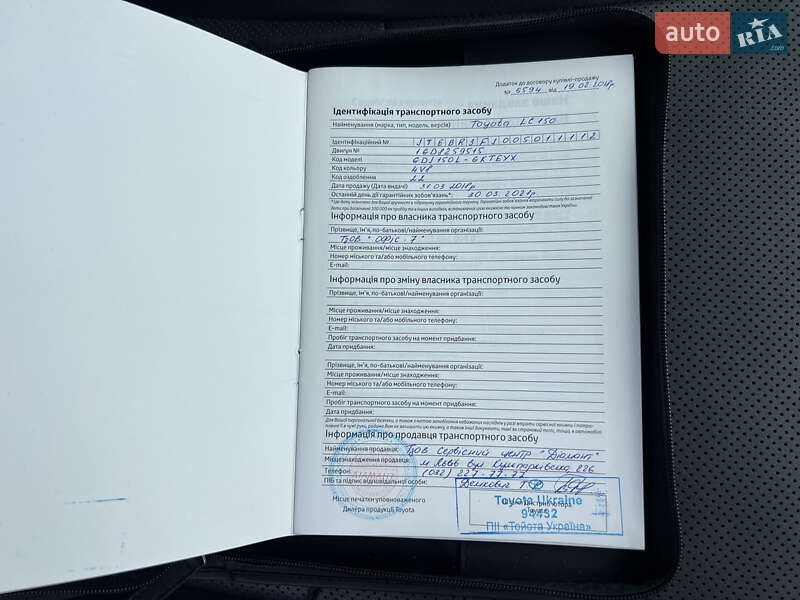 auto RIA
Додаток до договору купівлі-продажу
№ 5594 від 19.02.2018р
Ідентифікація транспортного засобу
Найменування (марка, тип, модель, версія) Toyota LC 150
Ідентифікаційний № JTEBR3FJ005011112
Двигун № 1GD1259515
Код моделі GDJ150L-GKTEYX
Код кольору 4V8
Код оздоблення 22
Дата продажу (Дата видачі) 31.03.2018р
Останній день дії гарантійних зобов'язань*: 30.03.2021р
Інформація про власника транспортного засобу
Прізвище, ім'я, по-батькові/найменування організації:
ТзОВ "Офіс-7"
Місце проживання/місце знаходження:
Номер міського та/або мобільного телефону:
E-mail:
Інформація про зміну власника транспортного засобу
Прізвище, ім'я, по-батькові/найменування організації:
Місце проживання/місце знаходження:
Номер міського та/або мобільного телефону:
E-mail:
Пробіг транспортного засобу на момент придбання:
Дата придбання:
Прізвище, ім'я, по-батькові/найменування організації:
Місце проживання/місце знаходження:
Номер міського та/або мобільного телефону:
E-mail:
Пробіг транспортного засобу на момент придбання:
Дата придбання:
Інформація про продавця транспортного засобу
Найменування продавця: ТзОВ Сервісний центр "Діамант"
Місцезнаходження продавця: м Львів вул Кульпарківська 226
Телефон: (032) 227-77-77
ПІБ та підпис відповідальної особи:
Місце печатки уповноваженого
Дилера продукції Toyota
Toyota Ukraine
94432
ПІІ «Тойота Україна»